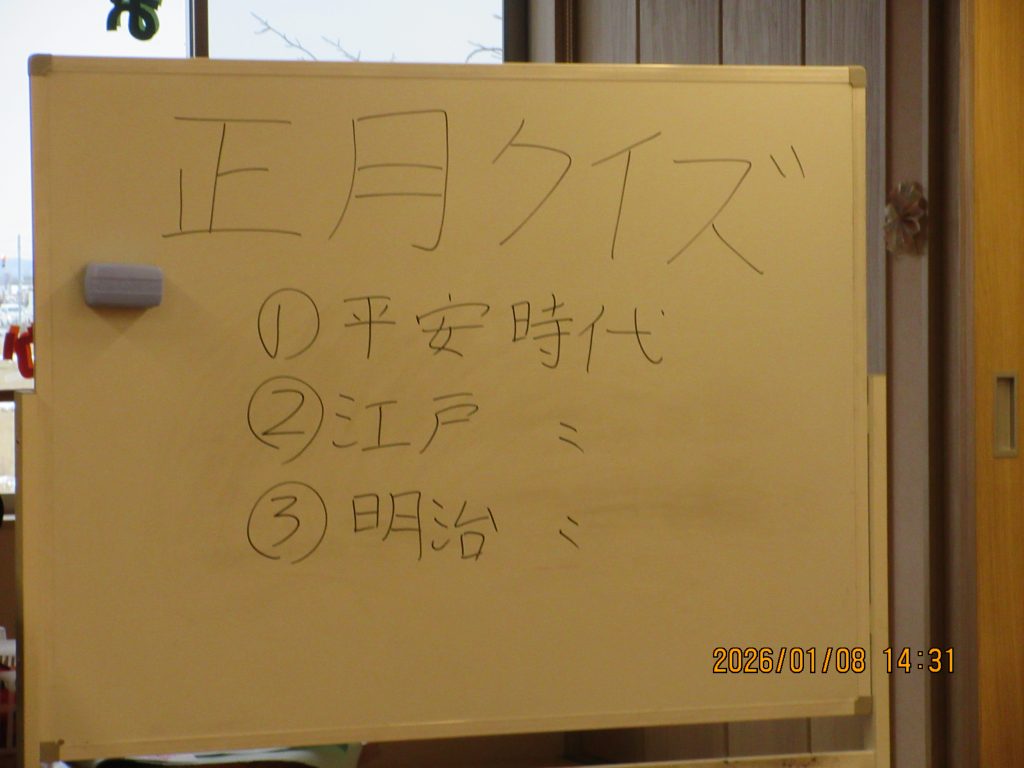 正月クイズ
①平安時代
②江戸 〃
③明治 〃
2026/01/08 14:31